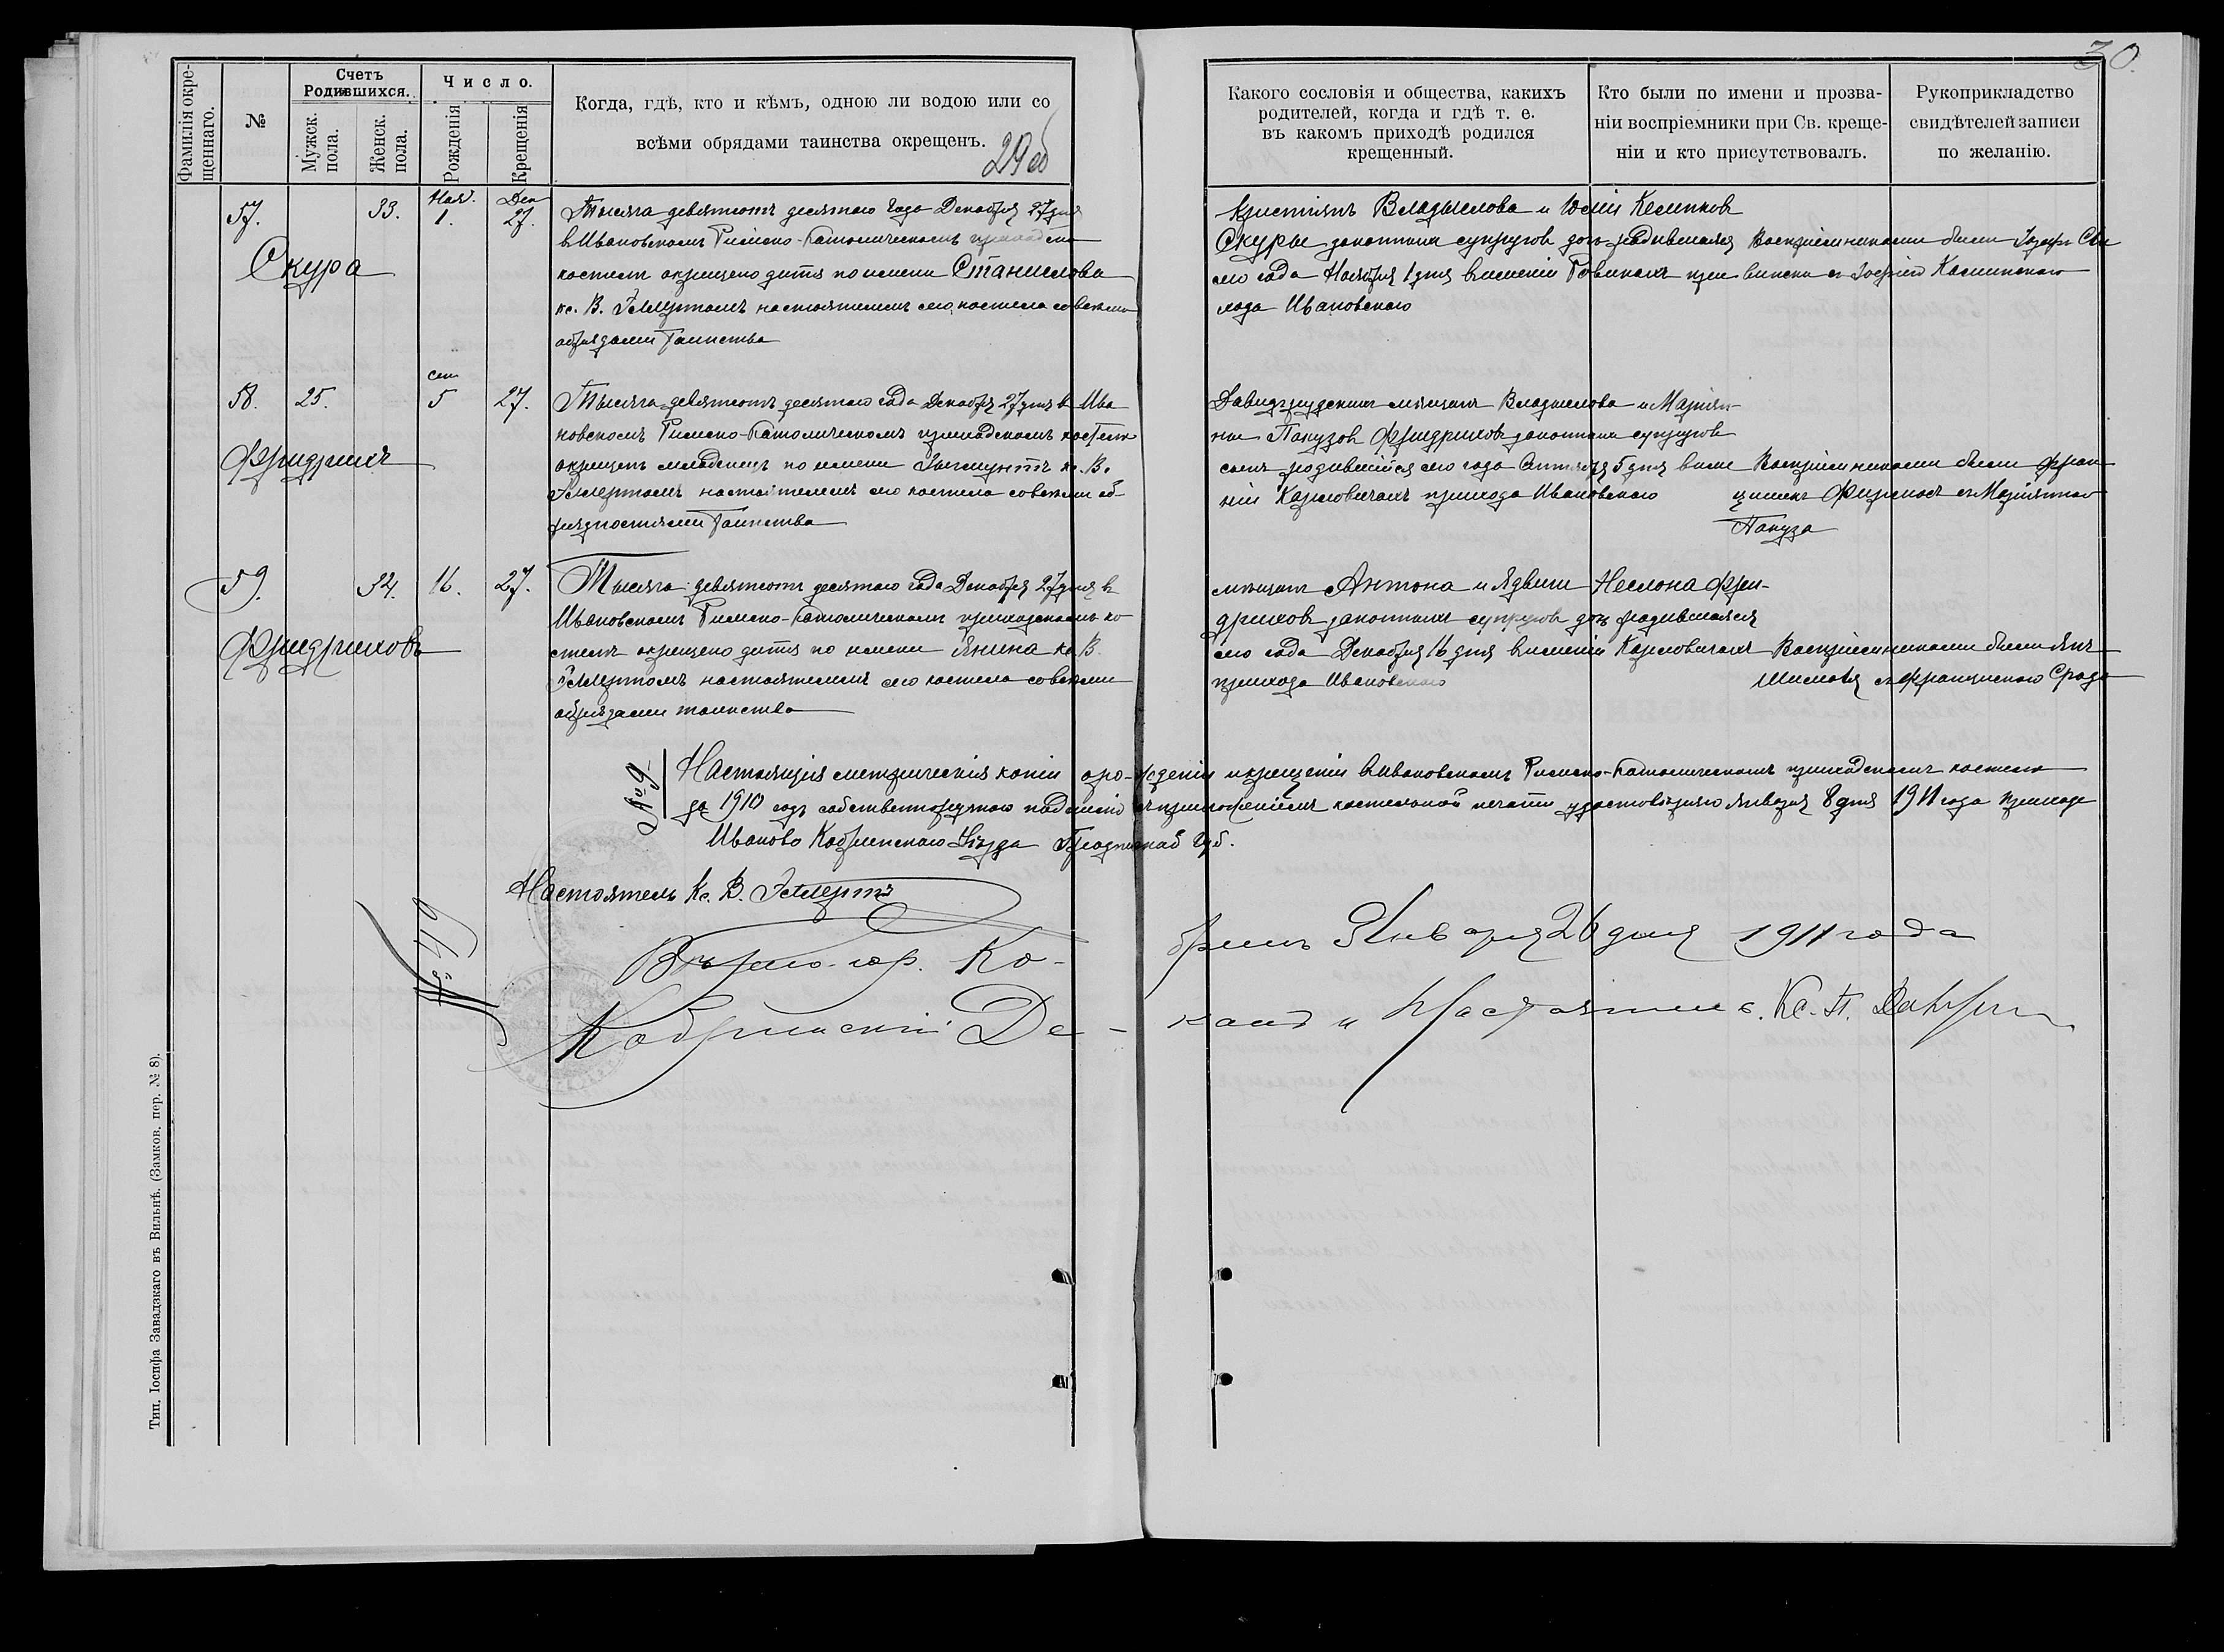 30.
Фамилія окре-
щеннаго.
№
Счетъ
Родившихся.
Мужск.
пола.
Женск.
пола.
Число.
Рожденія
Крещенія
Когда, гдѣ, кто и кѣмъ, одною ли водою или со
всѣми обрядами таинства окрещенъ.
29 об
Какого сословія и общества, какихъ
родителей, когда и гдѣ т. е.
въ какомъ приходѣ родился
крещенный.
Кто были по имени и прозва-
ніи воспріемники при Св. креще-
ніи и кто присутствовалъ.
Рукоприкладство
свидѣтелей записи
по желанію.
57. 33. Нояб. 1. Дек 27.
Скура
Тысяча девятсотъ десятаго года Декабря 27 дня
въ Ивановскомъ Римско-Католическомъ приходско
костелѣ окрещено дитя по имени Станислова
кс. В. настоятелемъ сего костела со всѣми
обрядами Таинства
Крестьянъ Владыслова и Юліи
Скуры законныхъ супруговъ дочь родившаяся
сего года Ноября 1 дня въ имѣніи при
хода Ивановскаго
Воспріемниками были Іозефъ
58. 25. Сен 5 27.
Фридрихъ
Тысяча девятсотъ десятаго года Декабря 27 дня въ Ива
новскомъ Римско-Католическомъ приходскомъ костелѣ
окрещенъ младенецъ по имени Зыгмунтъ кс. В.
настоятелемъ сего костела со всѣми об-
рядностями Таинства
мѣщанъ Владыслова и Маріян-
ны Пакузовъ Фридриховъ законныхъ супруговъ
сынъ родившійся сего года Сентября 5 дня въ имѣ
ніи Карловичахъ прихода Ивановскаго
Воспріемниками были Фран
цишекъ съ Маріянною
Пакуза
59. 34. 16. 27.
Фридриховъ
Тысяча девятсотъ десятаго года Декабря 27 дня въ
Ивановскомъ Римско-Католическомъ приходскомъ ко
стелѣ окрещено дитя по имени Янина кс. В.
настоятелемъ сего костела со всѣми
обрядами таинства
мѣщанъ Антона и Ядвиги Фри-
дриховъ законныхъ супруговъ дочь родившаяся
сего года Декабря 16 дня въ имѣніи Карловичахъ
прихода Ивановскаго
Воспріемниками были Янъ
№ 9
Настоящія метрическія копіи о рожденіи и крещеніи въ Ивановскомъ Римско-Католическомъ приходскомъ костелѣ
за 1910 годъ собственноручною подписью съ приложеніемъ костельной печати удостовѣряю Января 8 дня 1911 года
Иваново Кобринскаго Уѣзда Гродненской Губ.
Настоятель Кс. В.
№ 49
Вѣрно. гор. Ко-
бринъ Января 26 дня 1911 года
Кобринскій Де-
канъ и Настоятель Кс.
Тип. Іосифа Завадзкаго въ Вильнѣ. (Замков. пер. № 8).